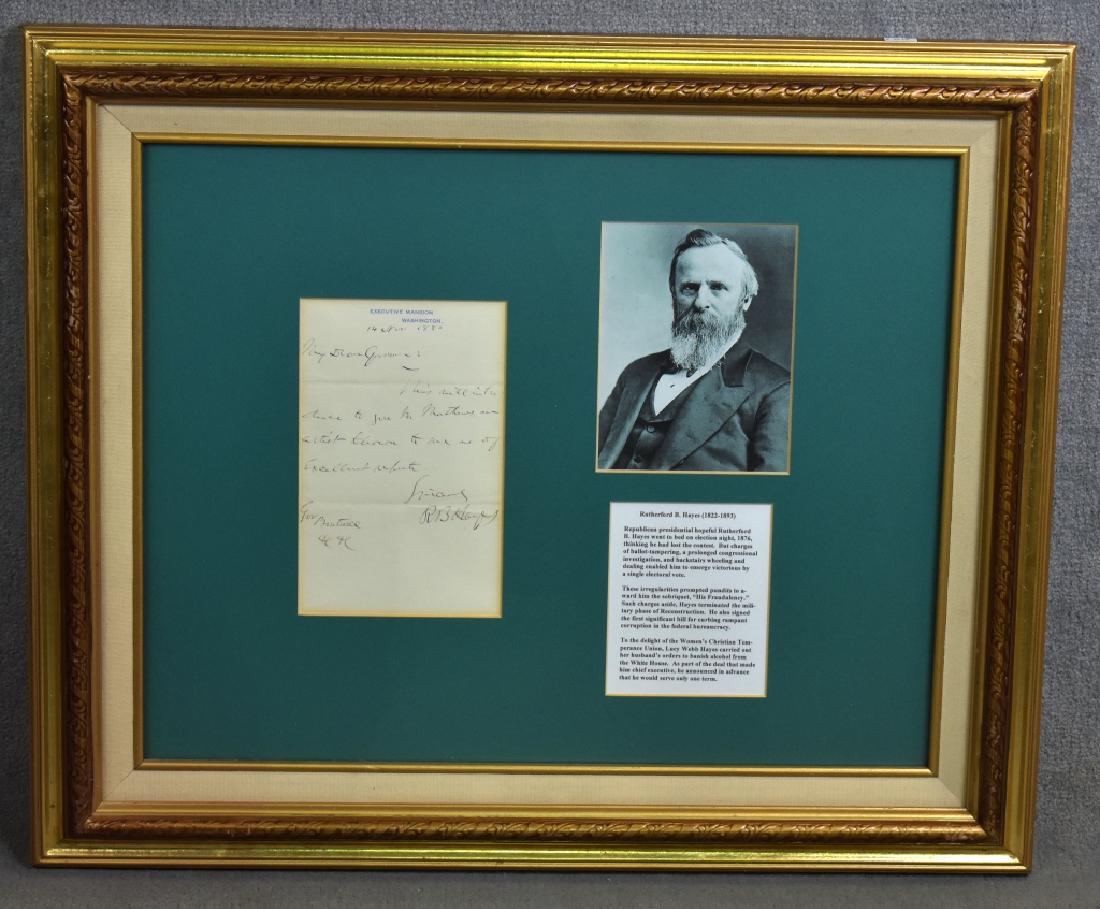 EXECUTIVE MANSION
WASHINGTON.
14 Nov 1880
My Dear Governor:
This will intro
duce to you Mr Mathews an
artist known to me as of
excellent repute
Sincerely
R B Hayes
Gov
&c &c
Rutherford B. Hayes (1822-1893)
Republican presidential hopeful Rutherford
B. Hayes went to bed on election night, 1876,
thinking he had lost the contest. But charges
of ballot-tampering, a prolonged congressional
investigation, and backstairs wheeling and
dealing enabled him to emerge victorious by
a single electoral vote.
These irregularities prompted pundits to a-
ward him the sobriquet, "His Fraudulency."
Such charges aside, Hayes terminated the mili-
tary phase of Reconstruction. He also signed
the first significant bill for curbing rampant
corruption in the federal bureaucracy.
To the delight of the Women's Christian Tem-
perance Union, Lucy Webb Hayes carried out
her husband's orders to banish alcohol from
the White House. As part of the deal that made
him chief executive, he announced in advance
that he would serve only one term.